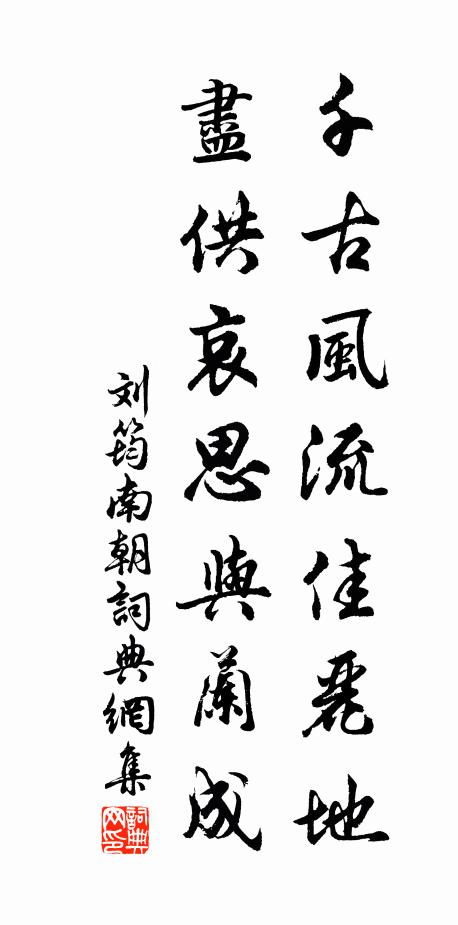 千古風流佳麗地
盡供哀思與蘭成
刘筠南朝詞典網集
詞典网印